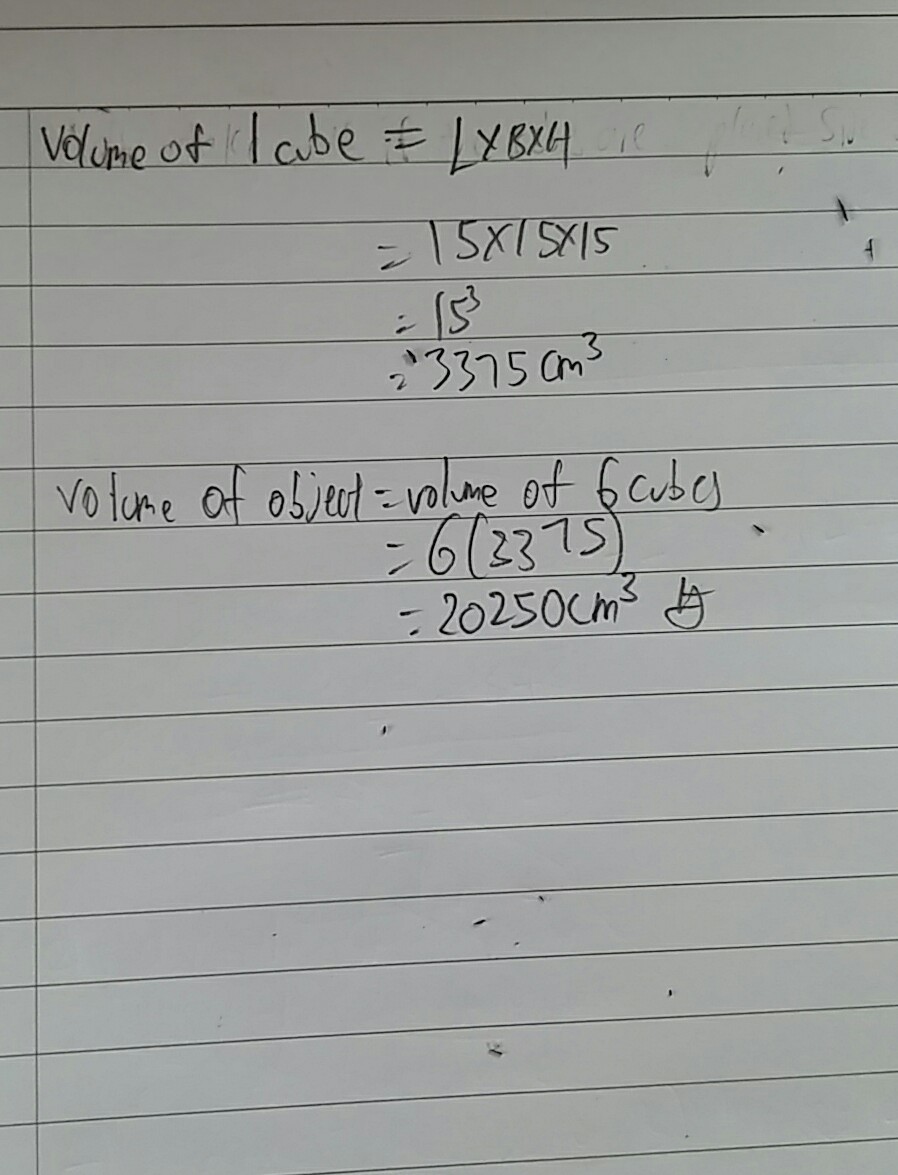 Volume of 1 cube = L×B×H
= 15×15×15
= 15³
= 3375 cm³
Volume of object = volume of 6 cubes
= 6(3375)
= 20250cm³